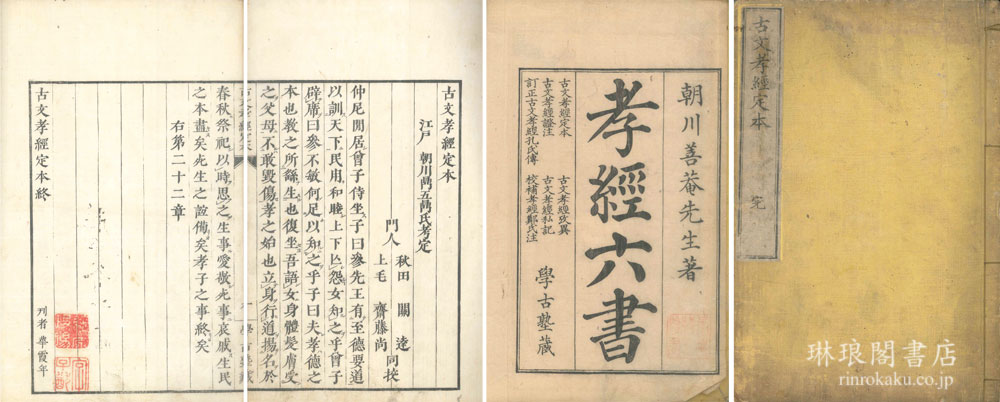 古文孝經定本
江戶 朝川鼎五鼎氏考定
門人 秋田 關 逵 同挍
上毛 齋藤尚
仲尼閒居曾子侍坐子曰參先王有至德要道
以訓天下民用和睦上下亡怨女知之乎曾子
辟席曰參不敏何足以知之乎子曰夫孝德之
本也教之所繇生也復坐吾語女身體髮膚受
之父母不敢毀傷孝之始也立身行道揚名於
春秋祭祀以時思之生事愛敬死事哀戚生民
之本盡矣死生之誼備矣孝子之事終矣
右第二十二章
古文孝經定本終
朝川善菴先生著
孝經六書
古文孝經定本 古文孝經攷異
古文孝經證注 古文孝經私記
訂正古文孝經孔氏傳 校補孝經鄭氏注
學古塾藏
古文孝經定本 完
琳琅閣書店
rinrokaku.co.jp